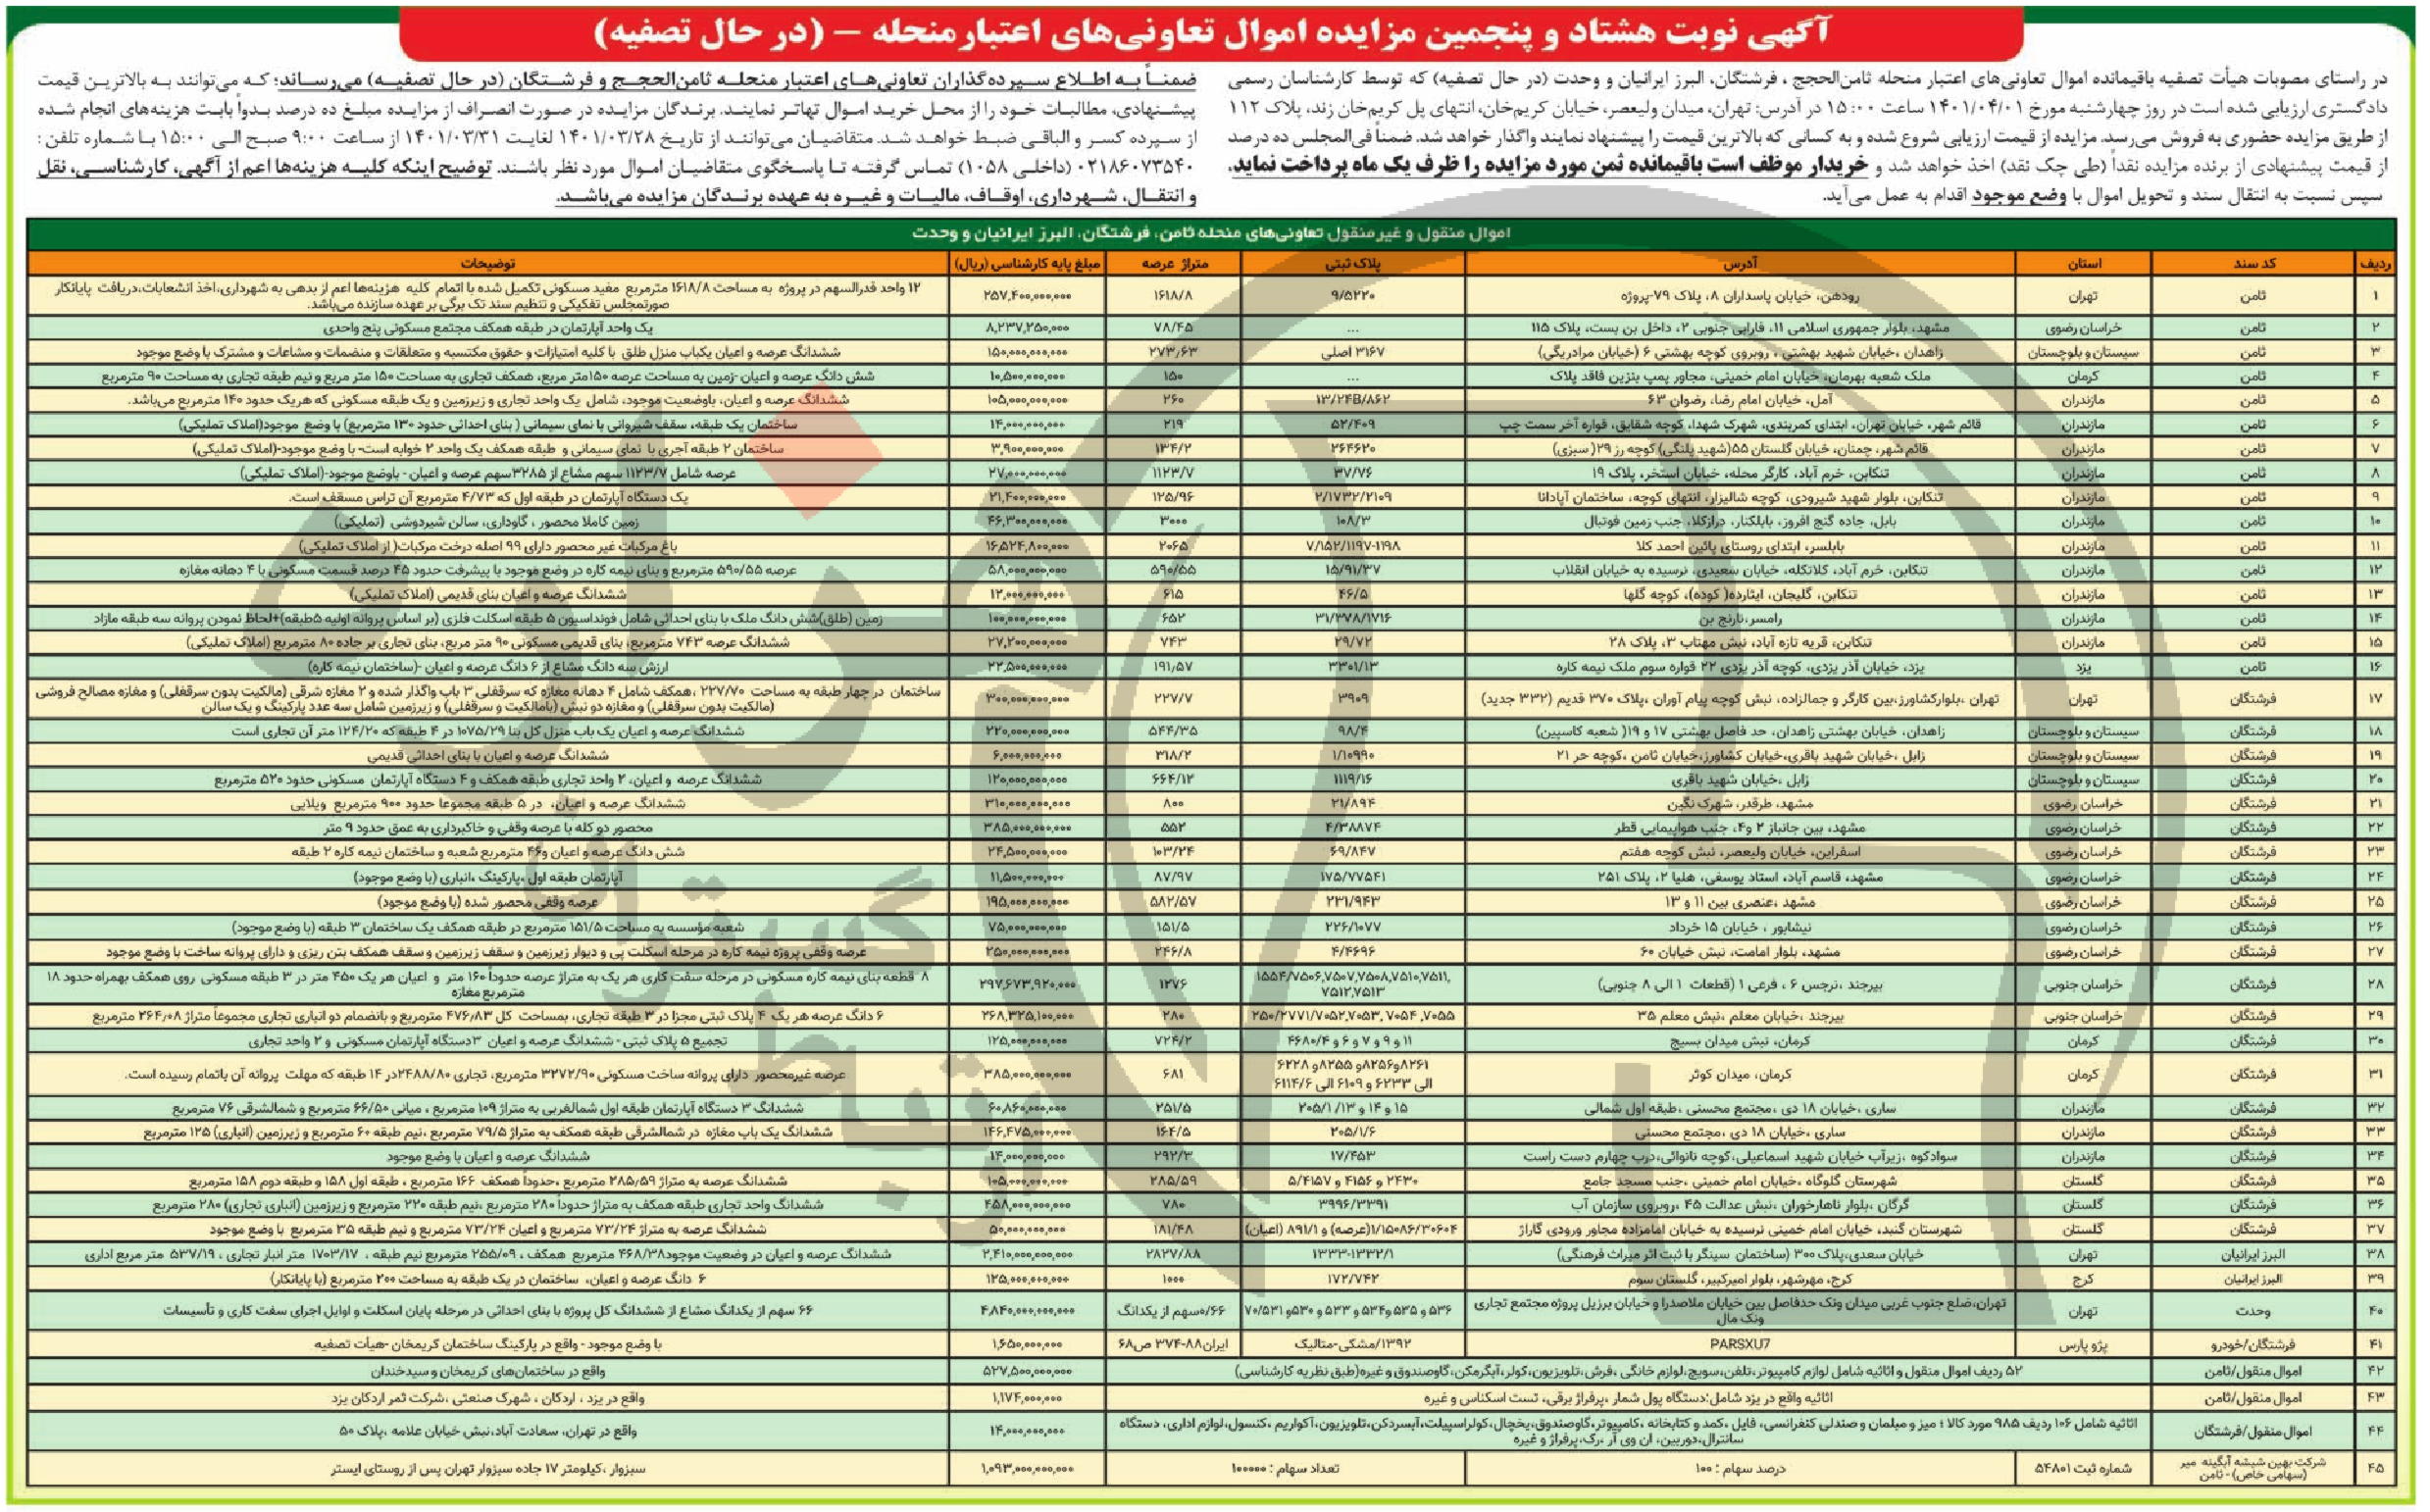 آگهی نوبت هشتاد و پنجمین مزایده اموال تعاونی‌های اعتبار منحله – (در حال تصفیه)
در راستای مصوبات هیأت تصفیه باقیمانده اموال تعاونی‌های اعتبار منحله ثامن‌الحجج ، فرشتگان، البرز ایرانیان و وحدت (در حال تصفیه) که توسط کارشناسان رسمی
دادگستری ارزیابی شده است در روز چهارشنبه مورخ ۱۴۰۱/۰۴/۰۱ ساعت ۱۵:۰۰ در آدرس: تهران، میدان ولیعصر، خیابان کریم‌خان، انتهای پل کریم‌خان زند، پلاک ۱۱۲
از طریق مزایده حضوری به فروش می‌رسد. مزایده از قیمت ارزیابی شروع شده و به کسانی که بالاترین قیمت را پیشنهاد نمایند واگذار خواهد شد. ضمناً فی‌المجلس ده درصد
از قیمت پیشنهادی از برنده مزایده نقداً (طی چک نقد) اخذ خواهد شد و خریدار موظف است باقیمانده ثمن مورد مزایده را ظرف یک ماه پرداخت نماید.
سپس نسبت به انتقال سند و تحویل اموال با وضع موجود اقدام به عمل می‌آید.
ضمناً به اطلاع سپرده‌گذاران تعاونی‌های اعتبار منحله ثامن‌الحجج و فرشتگان (در حال تصفیه) می‌رساند؛ که می‌توانند به بالاترین قیمت
پیشنهادی، مطالبات خود را از محل خرید اموال تهاتر نمایند. برندگان مزایده در صورت انصراف از مزایده مبلغ ده درصد بدواً بابت هزینه‌های انجام شده
از سپرده کسر و الباقی ضبط خواهد شد. متقاضیان می‌توانند از تاریخ ۱۴۰۱/۰۳/۲۸ لغایت ۱۴۰۱/۰۳/۳۱ از ساعت ۹:۰۰ صبح الی ۱۵:۰۰ با شماره تلفن :
۰۲۱۸۶۰۷۳۵۴۰ (داخلی ۱۰۵۸) تماس گرفته تا پاسخگوی متقاضیان اموال مورد نظر باشند. توضیح اینکه کلیه هزینه‌ها اعم از آگهی، کارشناسی، نقل
و انتقال، شهرداری، اوقاف، مالیات و غیره به عهده برندگان مزایده می‌باشد.
اموال منقول و غیرمنقول تعاونی‌های منحله ثامن، فرشتگان، البرز ایرانیان و وحدت
ردیف کد سند استان آدرس پلاک ثبتی متراژ عرصه مبلغ پایه کارشناسی (ریال) توضیحات
۱ ثامن تهران رودهن، خیابان پاسداران ۸، پلاک ۷۹-پروژه ۹/۵۲۲۰ ۱۶۱۸/۸ ۲۵۷,۴۰۰,۰۰۰,۰۰۰ ۱۲ واحد قدرالسهم در پروژه به مساحت ۱۶۱۸/۸ مترمربع مفید مسکونی تکمیل شده با اتمام کلیه هزینه‌ها اعم از بدهی به شهرداری،اخذ انشعابات،دریافت پایانکار
صورتمجلس تفکیکی و تنظیم سند تک برگی بر عهده سازنده می‌باشد.
۲ ثامن خراسان رضوی مشهد، بلوار جمهوری اسلامی ۱۱، فارابی جنوبی ۲، داخل بن بست، پلاک ۱۱۵ ... ۷۸/۴۵ ۸,۲۳۷,۲۵۰,۰۰۰ یک واحد آپارتمان در طبقه همکف مجتمع مسکونی پنج واحدی
۳ ثامن سیستان و بلوچستان زاهدان ،خیابان شهید بهشتی ، روبروی کوچه بهشتی ۶ (خیابان مرادریگی) ۳۱۶۷ اصلی ۲۷۳/۶۳ ۱۵۰,۰۰۰,۰۰۰,۰۰۰ ششدانگ عرصه و اعیان یکباب منزل طلق با کلیه امتیازات و حقوق مکتسبه و متعلقات و منضمات و مشاعات و مشترک با وضع موجود
۴ ثامن کرمان ملک شعبه بهرمان، خیابان امام خمینی، مجاور پمپ بنزین فاقد پلاک ... ۱۵۰ ۱۰,۵۰۰,۰۰۰,۰۰۰ شش دانگ عرصه و اعیان -زمین به مساحت عرصه ۱۵۰متر مربع، همکف تجاری به مساحت ۱۵۰ متر مربع و نیم طبقه تجاری به مساحت ۹۰ مترمربع
۵ ثامن مازندران آمل، خیابان امام رضا، رضوان ۶۳ ۱۳/۲۴B/۸۶۲ ۲۶۰ ۱۰۵,۰۰۰,۰۰۰,۰۰۰ ششدانگ عرصه و اعیان، باوضعیت موجود، شامل یک واحد تجاری و زیرزمین و یک طبقه مسکونی که هریک حدود ۱۴۰ مترمربع می‌باشد.
۶ ثامن مازندران قائم شهر، خیابان تهران، ابتدای کمربندی، شهرک شهدا، کوچه شقایق، قواره آخر سمت چپ ۵۲/۴۰۹ ۲۱۹ ۱۴,۰۰۰,۰۰۰,۰۰۰ ساختمان یک طبقه، سقف شیروانی با نمای سیمانی ( بنای احداثی حدود ۱۳۰ مترمربع) با وضع موجود(املاک تملیکی)
۷ ثامن مازندران قائم شهر، چمنان، خیابان گلستان ۵۵(شهید پلنگی) کوچه رز ۲۹( سبزی) ۲۶۴۶۲۰ ۱۳۴/۲ ۳,۹۰۰,۰۰۰,۰۰۰ ساختمان ۲ طبقه آجری با نمای سیمانی و طبقه همکف یک واحد ۲ خوابه است- با وضع موجود-(املاک تملیکی)
۸ ثامن مازندران تنکابن، خرم آباد، کارگر محله، خیابان استخر، پلاک ۱۹ ۳۷/۷۶ ۱۱۲۳/۷ ۲۷,۰۰۰,۰۰۰,۰۰۰ عرصه شامل ۱۱۲۳/۷ سهم مشاع از ۳۲۸۵سهم عرصه و اعیان - باوضع موجود-(املاک تملیکی)
۹ ثامن مازندران تنکابن، بلوار شهید شیرودی، کوچه شالیزار، انتهای کوچه، ساختمان آپادانا ۲/۱۷۳۲/۲۱۰۹ ۱۲۵/۹۶ ۲۱,۴۰۰,۰۰۰,۰۰۰ یک دستگاه آپارتمان در طبقه اول که ۴/۷۳ مترمربع آن تراس مسقف است.
۱۰ ثامن مازندران بابل، جاده گنج افروز، بابلکنار، درازکلا، جنب زمین فوتبال ۱۰۸/۳ ۳۰۰۰ ۴۶,۳۰۰,۰۰۰,۰۰۰ زمین کاملا محصور ، گاوداری، سالن شیردوشی (تملیکی)
۱۱ ثامن مازندران بابلسر، ابتدای روستای پائین احمد کلا ۷/۱۵۲/۱۱۹۷-۱۱۹۸ ۲۰۶۵ ۱۶,۵۲۴,۸۰۰,۰۰۰ باغ مرکبات غیر محصور دارای ۹۹ اصله درخت مرکبات( از املاک تملیکی)
۱۲ ثامن مازندران تنکابن، خرم آباد، کلاتکله، خیابان سعیدی، نرسیده به خیابان انقلاب ۱۵/۹۱/۳۷ ۵۹۰/۵۵ ۵۸,۰۰۰,۰۰۰,۰۰۰ عرصه ۵۹۰/۵۵ مترمربع و بنای نیمه کاره در وضع موجود با پیشرفت حدود ۴۵ درصد قسمت مسکونی با ۴ دهانه مغازه
۱۳ ثامن مازندران تنکابن، گلیجان، ایثارده( کوده)، کوچه گلها ۴۶/۵ ۶۱۵ ۱۲,۰۰۰,۰۰۰,۰۰۰ ششدانگ عرصه و اعیان بنای قدیمی (املاک تملیکی)
۱۴ ثامن مازندران رامسر،نارنج بن ۳۱/۳۷۸/۱۷۱۶ ۶۵۲ ۱۰۰,۰۰۰,۰۰۰,۰۰۰ زمین (طلق)شش دانگ ملک با بنای احداثی شامل فونداسیون ۵ طبقه اسکلت فلزی (بر اساس پروانه اولیه ۵طبقه)+لحاظ نمودن پروانه سه طبقه مازاد
۱۵ ثامن مازندران تنکابن، قریه تازه آباد، نبش مهتاب ۳، پلاک ۲۸ ۲۹/۷۲ ۷۴۳ ۲۷,۲۰۰,۰۰۰,۰۰۰ ششدانگ عرصه ۷۴۳ مترمربع، بنای قدیمی مسکونی ۹۰ متر مربع، بنای تجاری بر جاده ۸۰ مترمربع (املاک تملیکی)
۱۶ ثامن یزد یزد، خیابان آذر یزدی، کوچه آذر یزدی ۲۲ قواره سوم ملک نیمه کاره ۳۳۰۱/۱۳ ۱۹۱/۵۷ ۲۲,۵۰۰,۰۰۰,۰۰۰ ارزش سه دانگ مشاع از ۶ دانگ عرصه و اعیان -(ساختمان نیمه کاره)
۱۷ فرشتگان تهران تهران ،بلوارکشاورز،بین کارگر و جمالزاده، نبش کوچه پیام آوران ،پلاک ۳۷۰ قدیم (۳۳۲ جدید) ۳۹۰۹ ۲۲۷/۷ ۳۰۰,۰۰۰,۰۰۰,۰۰۰ ساختمان در چهار طبقه به مساحت ۲۲۷/۷۰ ،همکف شامل ۴ دهانه مغازه که سرقفلی ۳ باب واگذار شده و ۲ مغازه شرقی (مالکیت بدون سرقفلی) و مغازه مصالح فروشی
(مالکیت بدون سرقفلی) و مغازه دو نبش (بامالکیت و سرقفلی) و زیرزمین شامل سه عدد پارکینگ و یک سالن
۱۸ فرشتگان سیستان و بلوچستان زاهدان، خیابان بهشتی زاهدان، حد فاصل بهشتی ۱۷ و ۱۹( شعبه کاسپین) ۹۸/۴ ۵۴۴/۳۵ ۲۲۰,۰۰۰,۰۰۰,۰۰۰ ششدانگ عرصه و اعیان یک باب منزل کل بنا ۱۰۷۵/۲۹ در ۴ طبقه که ۱۲۴/۲۰ متر آن تجاری است
۱۹ فرشتگان سیستان و بلوچستان زابل ،خیابان شهید باقری،خیابان کشاورز،خیابان ثامن ،کوچه حر ۲۱ ۱/۱۰۹۹۰ ۳۱۸/۲ ۶,۰۰۰,۰۰۰,۰۰۰ ششدانگ عرصه و اعیان با بنای احداثی قدیمی
۲۰ فرشتگان سیستان و بلوچستان زابل ،خیابان شهید باقری ۱۱۱۹/۱۶ ۶۶۴/۱۲ ۱۲۰,۰۰۰,۰۰۰,۰۰۰ ششدانگ عرصه و اعیان، ۲ واحد تجاری طبقه همکف و ۴ دستگاه آپارتمان مسکونی حدود ۵۲۰ مترمربع
۲۱ فرشتگان خراسان رضوی مشهد، طرقدر، شهرک نگین ۲۱/۸۹۴ ۸۰۰ ۳۱۰,۰۰۰,۰۰۰,۰۰۰ ششدانگ عرصه و اعیان، در ۵ طبقه مجموعا حدود ۹۰۰ مترمربع ویلایی
۲۲ فرشتگان خراسان رضوی مشهد، بین جانباز ۲ و۴، جنب هواپیمایی قطر ۴/۳۸۸۷۴ ۵۵۲ ۳۸۵,۰۰۰,۰۰۰,۰۰۰ محصور دو کله با عرصه وقفی و خاکبرداری به عمق حدود ۹ متر
۲۳ فرشتگان خراسان رضوی اسفراین، خیابان ولیعصر، نبش کوچه هفتم ۶۹/۸۴۷ ۱۰۳/۲۴ ۲۴,۵۰۰,۰۰۰,۰۰۰ شش دانگ عرصه و اعیان و۴۶ مترمربع شعبه و ساختمان نیمه کاره ۲ طبقه
۲۴ فرشتگان خراسان رضوی مشهد، قاسم آباد، استاد یوسفی، هلیا ۲، پلاک ۲۵۱ ۱۷۵/۷۷۵۴۱ ۸۷/۹۷ ۱۱,۵۰۰,۰۰۰,۰۰۰ آپارتمان طبقه اول ،پارکینگ ،انباری (با وضع موجود)
۲۵ فرشتگان خراسان رضوی مشهد ،عنصری بین ۱۱ و ۱۳ ۲۳۱/۹۴۳ ۵۸۲/۵۷ ۱۹۵,۰۰۰,۰۰۰,۰۰۰ عرصه وقفی محصور شده (با وضع موجود)
۲۶ فرشتگان خراسان رضوی نیشابور ، خیابان ۱۵ خرداد ۲۲۶/۱۰۷۷ ۱۵۱/۵ ۷۵,۰۰۰,۰۰۰,۰۰۰ شعبه مؤسسه به مساحت ۱۵۱/۵ مترمربع در طبقه همکف یک ساختمان ۳ طبقه (با وضع موجود)
۲۷ فرشتگان خراسان رضوی مشهد، بلوار امامت، نبش خیابان ۶۰ ۴/۴۶۹۶ ۲۴۶/۸ ۲۵۰,۰۰۰,۰۰۰,۰۰۰ عرصه وقفی پروژه نیمه کاره در مرحله اسکلت پی و دیوار زیرزمین و سقف زیرزمین و سقف همکف بتن ریزی و دارای پروانه ساخت با وضع موجود
۲۸ فرشتگان خراسان جنوبی بیرجند ،نرجس ۶ ، فرعی ۱ (قطعات ۱ الی ۸ جنوبی) ۱۵۵۴/۷۵۰۶,۷۵۰۷,۷۵۰۸,۷۵۱۰,۷۵۱۱,
۷۵۱۲,۷۵۱۳ ۱۲۷۶ ۲۹۷,۶۷۳,۹۲۰,۰۰۰ ۸ قطعه بنای نیمه کاره مسکونی در مرحله سفت کاری هر یک به متراژ عرصه حدوداً ۱۶۰ متر و اعیان هر یک ۴۵۰ متر در ۳ طبقه مسکونی روی همکف بهمراه حدود ۱۸
مترمربع مغازه
۲۹ فرشتگان خراسان جنوبی بیرجند ،خیابان معلم ،نبش معلم ۳۵ ۲۵۰/۲۷۷۱/۷۰۵۲,۷۰۵۳,۷۰۵۴,۷۰۵۵ ۲۸۰ ۲۶۸,۳۲۵,۱۰۰,۰۰۰ ۶ دانگ عرصه هر یک ۴ پلاک ثبتی مجزا در ۳ طبقه تجاری، بمساحت کل ۴۷۶/۸۳ مترمربع و بانضمام دو انباری تجاری مجموعاً متراژ ۲۶۴/۰۸ مترمربع
۳۰ فرشتگان کرمان کرمان، نبش میدان بسیج ۱۱ و ۹ و ۷ و ۶ و ۴۶۸۰/۴ ۷۲۴/۲ ۱۲۵,۰۰۰,۰۰۰,۰۰۰ تجمیع ۵ پلاک ثبتی - ششدانگ عرصه و اعیان ۳دستگاه آپارتمان مسکونی و ۲ واحد تجاری
۳۱ فرشتگان کرمان کرمان، میدان کوثر ۸۲۶۱و۸۲۵۶و ۸۲۵۵و ۶۲۲۸
الی ۶۲۳۳ و ۶۱۰۹ الی ۶۱۱۴/۶ ۶۸۱ ۳۸۵,۰۰۰,۰۰۰,۰۰۰ عرصه غیرمحصور دارای پروانه ساخت مسکونی ۳۲۷۲/۹۰ مترمربع، تجاری ۲۴۸۸/۸۰در ۱۴ طبقه که مهلت پروانه آن باتمام رسیده است.
۳۲ فرشتگان مازندران ساری ،خیابان ۱۸ دی ،مجتمع محسنی ،طبقه اول شمالی ۱۵ و ۱۴ و ۲۰۵/۱/۱۳ ۲۵۱/۵ ۶۰,۸۶۰,۰۰۰,۰۰۰ ششدانگ ۳ دستگاه آپارتمان طبقه اول شمالغربی به متراژ ۱۰۹ مترمربع ، میانی ۶۶/۵۰ مترمربع و شمالشرقی ۷۶ مترمربع
۳۳ فرشتگان مازندران ساری ،خیابان ۱۸ دی ،مجتمع محسنی ۲۰۵/۱/۶ ۱۶۴/۵ ۱۴۶,۴۷۵,۰۰۰,۰۰۰ ششدانگ یک باب مغازه در شمالشرقی طبقه همکف به متراژ ۷۹/۵ مترمربع ،نیم طبقه ۶۰ مترمربع و زیرزمین (انباری) ۱۲۵ مترمربع
۳۴ فرشتگان مازندران سوادکوه ،زیرآب خیابان شهید اسماعیلی،کوچه نانوائی،درب چهارم دست راست ۱۷/۴۵۳ ۲۹۲/۳ ۱۴,۰۰۰,۰۰۰,۰۰۰ ششدانگ عرصه و اعیان با وضع موجود
۳۵ فرشتگان گلستان شهرستان گلوگاه ،خیابان امام خمینی ،جنب مسجد جامع ۲۴۳۰ و ۴۱۵۶ و ۵/۴۱۵۷ ۲۸۵/۵۹ ۱۰۵,۰۰۰,۰۰۰,۰۰۰ ششدانگ عرصه به متراژ ۲۸۵/۵۹ مترمربع ،حدوداً همکف ۱۶۶ مترمربع ، طبقه اول ۱۵۸ و طبقه دوم ۱۵۸ مترمربع
۳۶ فرشتگان گلستان گرگان ،بلوار ناهارخوران، نبش عدالت ۴۵ ،روبروی سازمان آب ۳۹۹۶/۳۳۹۱ ۷۸۰ ۴۵۸,۰۰۰,۰۰۰,۰۰۰ ششدانگ واحد تجاری طبقه همکف به متراژ حدوداً ۲۸۰ مترمربع ،نیم طبقه ۲۲۰ مترمربع و زیرزمین (انباری تجاری) ۲۸۰ مترمربع
۳۷ فرشتگان گلستان شهرستان گنبد، خیابان امام خمینی نرسیده به خیابان امامزاده مجاور ورودی گاراژ ۱/۱۵۰۸۶/۳۰۶۰۴(عرصه) و ۸۹۱/۱ (اعیان) ۱۸۱/۴۸ ۵۰,۰۰۰,۰۰۰,۰۰۰ ششدانگ عرصه به متراژ ۷۳/۲۴ مترمربع و اعیان ۷۳/۲۴ مترمربع و نیم طبقه ۳۵ مترمربع با وضع موجود
۳۸ البرز ایرانیان تهران خیابان سعدی،پلاک ۳۰۰ (ساختمان سینگر با ثبت اثر میراث فرهنگی) ۱۳۳۳-۱۳۳۲/۱ ۲۸۳۷/۸۸ ۲,۴۱۰,۰۰۰,۰۰۰,۰۰۰ ششدانگ عرصه و اعیان در وضعیت موجود۴۶۸/۳۸ مترمربع همکف ، ۲۵۵/۰۹ مترمربع نیم طبقه ، ۱۷۰۳/۱۷ متر انبار تجاری ، ۵۳۷/۱۹ متر مربع اداری
۳۹ البرز ایرانیان کرج کرج، مهرشهر، بلوار امیرکبیر، گلستان سوم ۱۷۲/۷۴۲ ۱۰۰۰ ۱۲۵,۰۰۰,۰۰۰,۰۰۰ ۶ دانگ عرصه و اعیان، ساختمان در یک طبقه به مساحت ۲۰۰ مترمربع (با پایانکار)
۴۰ وحدت تهران تهران،ضلع جنوب غربی میدان ونک حدفاصل بین خیابان ملاصدرا و خیابان برزیل پروژه مجتمع تجاری
ونک مال ۵۳۶ و ۵۳۵ و ۵۳۴ و ۵۳۳ و ۵۳۰و ۷۰/۵۳۱ ۰/۶۶سهم از یکدانگ ۴,۸۴۰,۰۰۰,۰۰۰,۰۰۰ ۶۶ سهم از یکدانگ مشاع از ششدانگ کل پروژه با بنای احداثی در مرحله پایان اسکلت و اوایل اجرای سفت کاری و تأسیسات
۴۱ فرشتگان/خودرو پژو پارس PARSXU7 ۱۳۹۲/مشکی-متالیک ایران۸۸-۳۷۴ ص۶۸ ۱,۶۵۰,۰۰۰,۰۰۰ با وضع موجود - واقع در پارکینگ ساختمان کریمخان -هیأت تصفیه
۴۲ اموال منقول/ثامن ۵۲ ردیف اموال منقول و اثاثیه شامل لوازم کامپیوتر،تلفن،سویچ،لوازم خانگی ،فرش،تلویزیون،کولر،آبگرمکن،گاوصندوق و غیره(طبق نظریه کارشناسی) ۵۲۷,۵۰۰,۰۰۰,۰۰۰ واقع در ساختمان‌های کریمخان و سیدخندان
۴۳ اموال منقول/ثامن اثاثیه واقع در یزد شامل:دستگاه پول شمار ،پرفراژ برقی، تست اسکناس و غیره ۱,۱۷۴,۰۰۰,۰۰۰ واقع در یزد ، اردکان ، شهرک صنعتی ،شرکت ثمر اردکان یزد
۴۴ اموال منقول/فرشتگان اثاثیه شامل ۱۰۶ ردیف ۹۸۵ مورد کالا ؛ میز و مبلمان و صندلی کنفرانسی، فایل ،کمد و کتابخانه ،کامپیوتر،گاوصندوق،یخچال،کولراسپیلت،آبسردکن،تلویزیون،آکواریم ،کنسول،لوازم اداری، دستگاه
سانترال،دوربین، ان وی آر ،رک،پرفراژ و غیره ۱۴,۰۰۰,۰۰۰,۰۰۰ واقع در تهران، سعادت آباد،نبش خیابان علامه ،پلاک ۵۰
۴۵ شرکت بهین شیشه آبگینه میر
(سهامی خاص) - ثامن شماره ثبت ۵۴۸۰۱ درصد سهام : ۱۰۰ تعداد سهام : ۱۰۰۰۰۰ ۱,۰۹۳,۰۰۰,۰۰۰,۰۰۰ سبزوار ،کیلومتر ۱۷ جاده سبزوار تهران پس از روستای ایستر